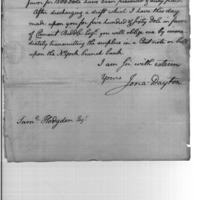 After discharging a draft which I have this day
made upon you for five hundred & sixty Dolls in favor
of Clement Biddle Esqr. you will oblige me by imme-
diately transmitting the surplus in a Post note or bill
upon the N York branch bank
I am Sir with esteem
Yours
Jona: Dayton
Saml. Hodgdon Esqr.